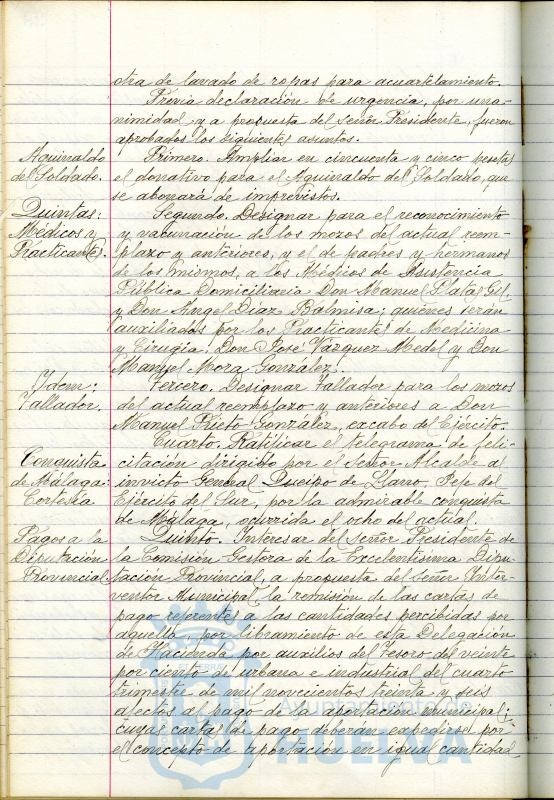 otra de lavado de ropas para acuartelamiento.
Previa declaración de urgencia, por una-
nimidad, y a propuesta del Señor Presidente, fueron
aprobados los siguientes asuntos.
Aguinaldo
del Soldado.
Primero. Ampliar en cincuenta y cinco pesetas
el donativo para el Aguinaldo del Soldado, que
se abonará de imprevistos.
Quintas:
Médicos y
Practicantes.
Segundo. Designar para el reconocimiento
y vacunación de los mozos del actual reem-
plazo y anteriores, y el de padres y hermanos
de los mismos, a los Médicos de Asistencia
Pública Domiciliaria Don Manuel Plata Gil,
y Don Angel Diaz Balmisa; quienes serán
auxiliados por los Practicantes de Medicina
y Cirugia, Don José Vázquez Medel y Don
Manuel Mora González.
Idem:
Tallador.
Tercero. Designar Tallador para los mozos
del actual reemplazo y anteriores a Don
Manuel Prieto González, excabo del Ejército.
Conquista
de Málaga:
Cortesía
Cuarto. Ratificar el telegrama de feli-
citación dirigido por el Señor Alcalde al
invicto General Queipo de Llano, Jefe del
Ejército del Sur, por la admirable conquista
de Málaga, ocurrida el ocho del actual.
Pagos a la
Diputación
Provincial.
Quinto. Interesar del Señor Presidente de
la Comisión Gestora de la Excelentísima Dipu-
tación Provincial, a propuesta del Señor Inter-
ventor Municipal, la remisión de las cartas de
pago referentes a las cantidades percibidas por
aquella, por libramiento de esta Delegación
de Hacienda por auxilios del Tesoro del veinte
por ciento de urbana e industrial del cuarto
trimestre de mil novecientos treinta y seis
afectos al pago de la aportación municipal;
cuyas cartas de pago deberán expedirse por
el concepto de aportación en igual cantidad
Ayuntamiento de
HUELVA